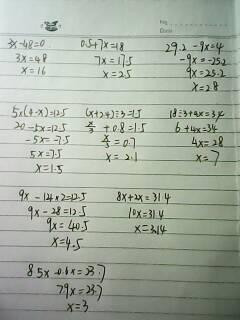 No.
Date
3x-48=0
3x=48
x=16
0.5+7x=18
7x=17.5
x=2.5
29.2-9x=4
-9x=-25.2
9x=25.2
x=2.8
5x(4-x)=12.5
20-5x=12.5
-5x=-7.5
5x=7.5
x=1.5
(x+2.4)÷3=1.5
x/3+0.8=1.5
x/3=0.7
x=2.1
18÷3+4x=34
6+4x=34
4x=28
x=7
9x-14×2=12.5
9x-28=12.5
9x=40.5
x=4.5
8x+2x=31.4
10x=31.4
x=3.14
8.5x-0.6x=23.7
7.9x=23.7
x=3